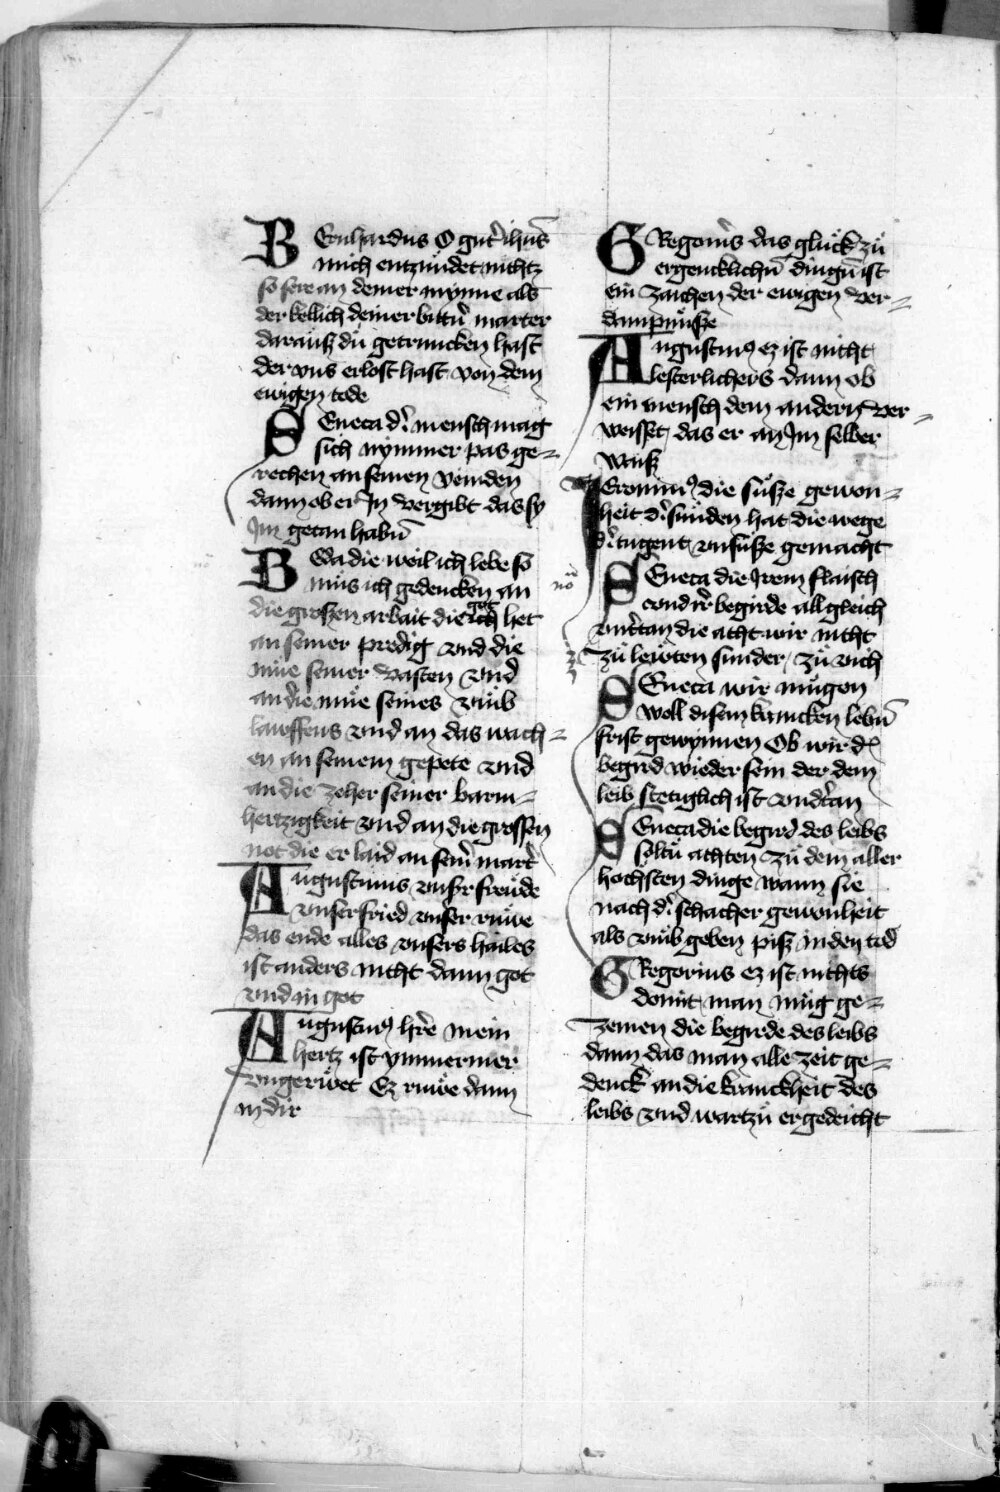 BErnhardus O gut̉ ihūs
mich entzündet nichtz
so sere an deiner mynne als
der kellich deiner bittn̄ marter
darauſz dü getruncken hast
der vns erlost hast von dem
ewigen tode
SEneca d̉ mensch mag
sich nymmer pas ge=
rechen an seinen veinden
dann ob er Jn vergibt das sy
Jm getan habn̄
BEda die weil ich lebe so
müs ich gedencken an
die grossen arbait die got het
an seiner predig vnd die
müe seiner vasten vnd
an die müe seines vmb
lawffens vnd an das wach=
en an seinem gepete vnd
an die zeher seiner barm=
hertzigkeit vnd an die grossen
not die er laid an sein̉ mart̉
AUgustinus vnsr̉ frewde
vnser fried vnser ruwe
das ende alles vnsers hailes
ist anders nicht dann got
vnd in got
AUgustin⁹ hr̄e mein
hertz ist ymmermer
vngeruwet Ez ruwe dann
in dir
GRegori⁹ das glück zü
ergencklichn̄ dingn̄ ist
ein zaichen der ewigen ver=
dampnüsze
AUgustin⁹ ez ist nicht
lesterlichers dann ob
ein mensch dem andern ver=
weisset das er an Jm selber
waisz
JEronim⁹ die süsze gewon=
heit d̉ sünden hat die wege
d̉ tugent vnsüsze gemacht
SEneca die Jrem flaisch
vnd ir̉ begirde allgleich
vnt̉tan die acht wir nicht
zü lewten sunder zü vich
no
SEneca wir mügen
woll disem krancken lebn̄
frist gewynnen Ob wir d̉
begird wieder sein der dem
leib stetiglich ist vndt̉an
SEneca die begird des leibs
soltu achten zü dem aller
hochsten dinge wann sie
nach d̉ schacher gewonheit
als vmb geben pisz in den tod
GRegorius ez ist nichts
domit man müg ge=
zemen die begirde des leibs
dann das man alle zeit ge=
denck an die kranckheit des
leibs vnd wartzü er gedeicht